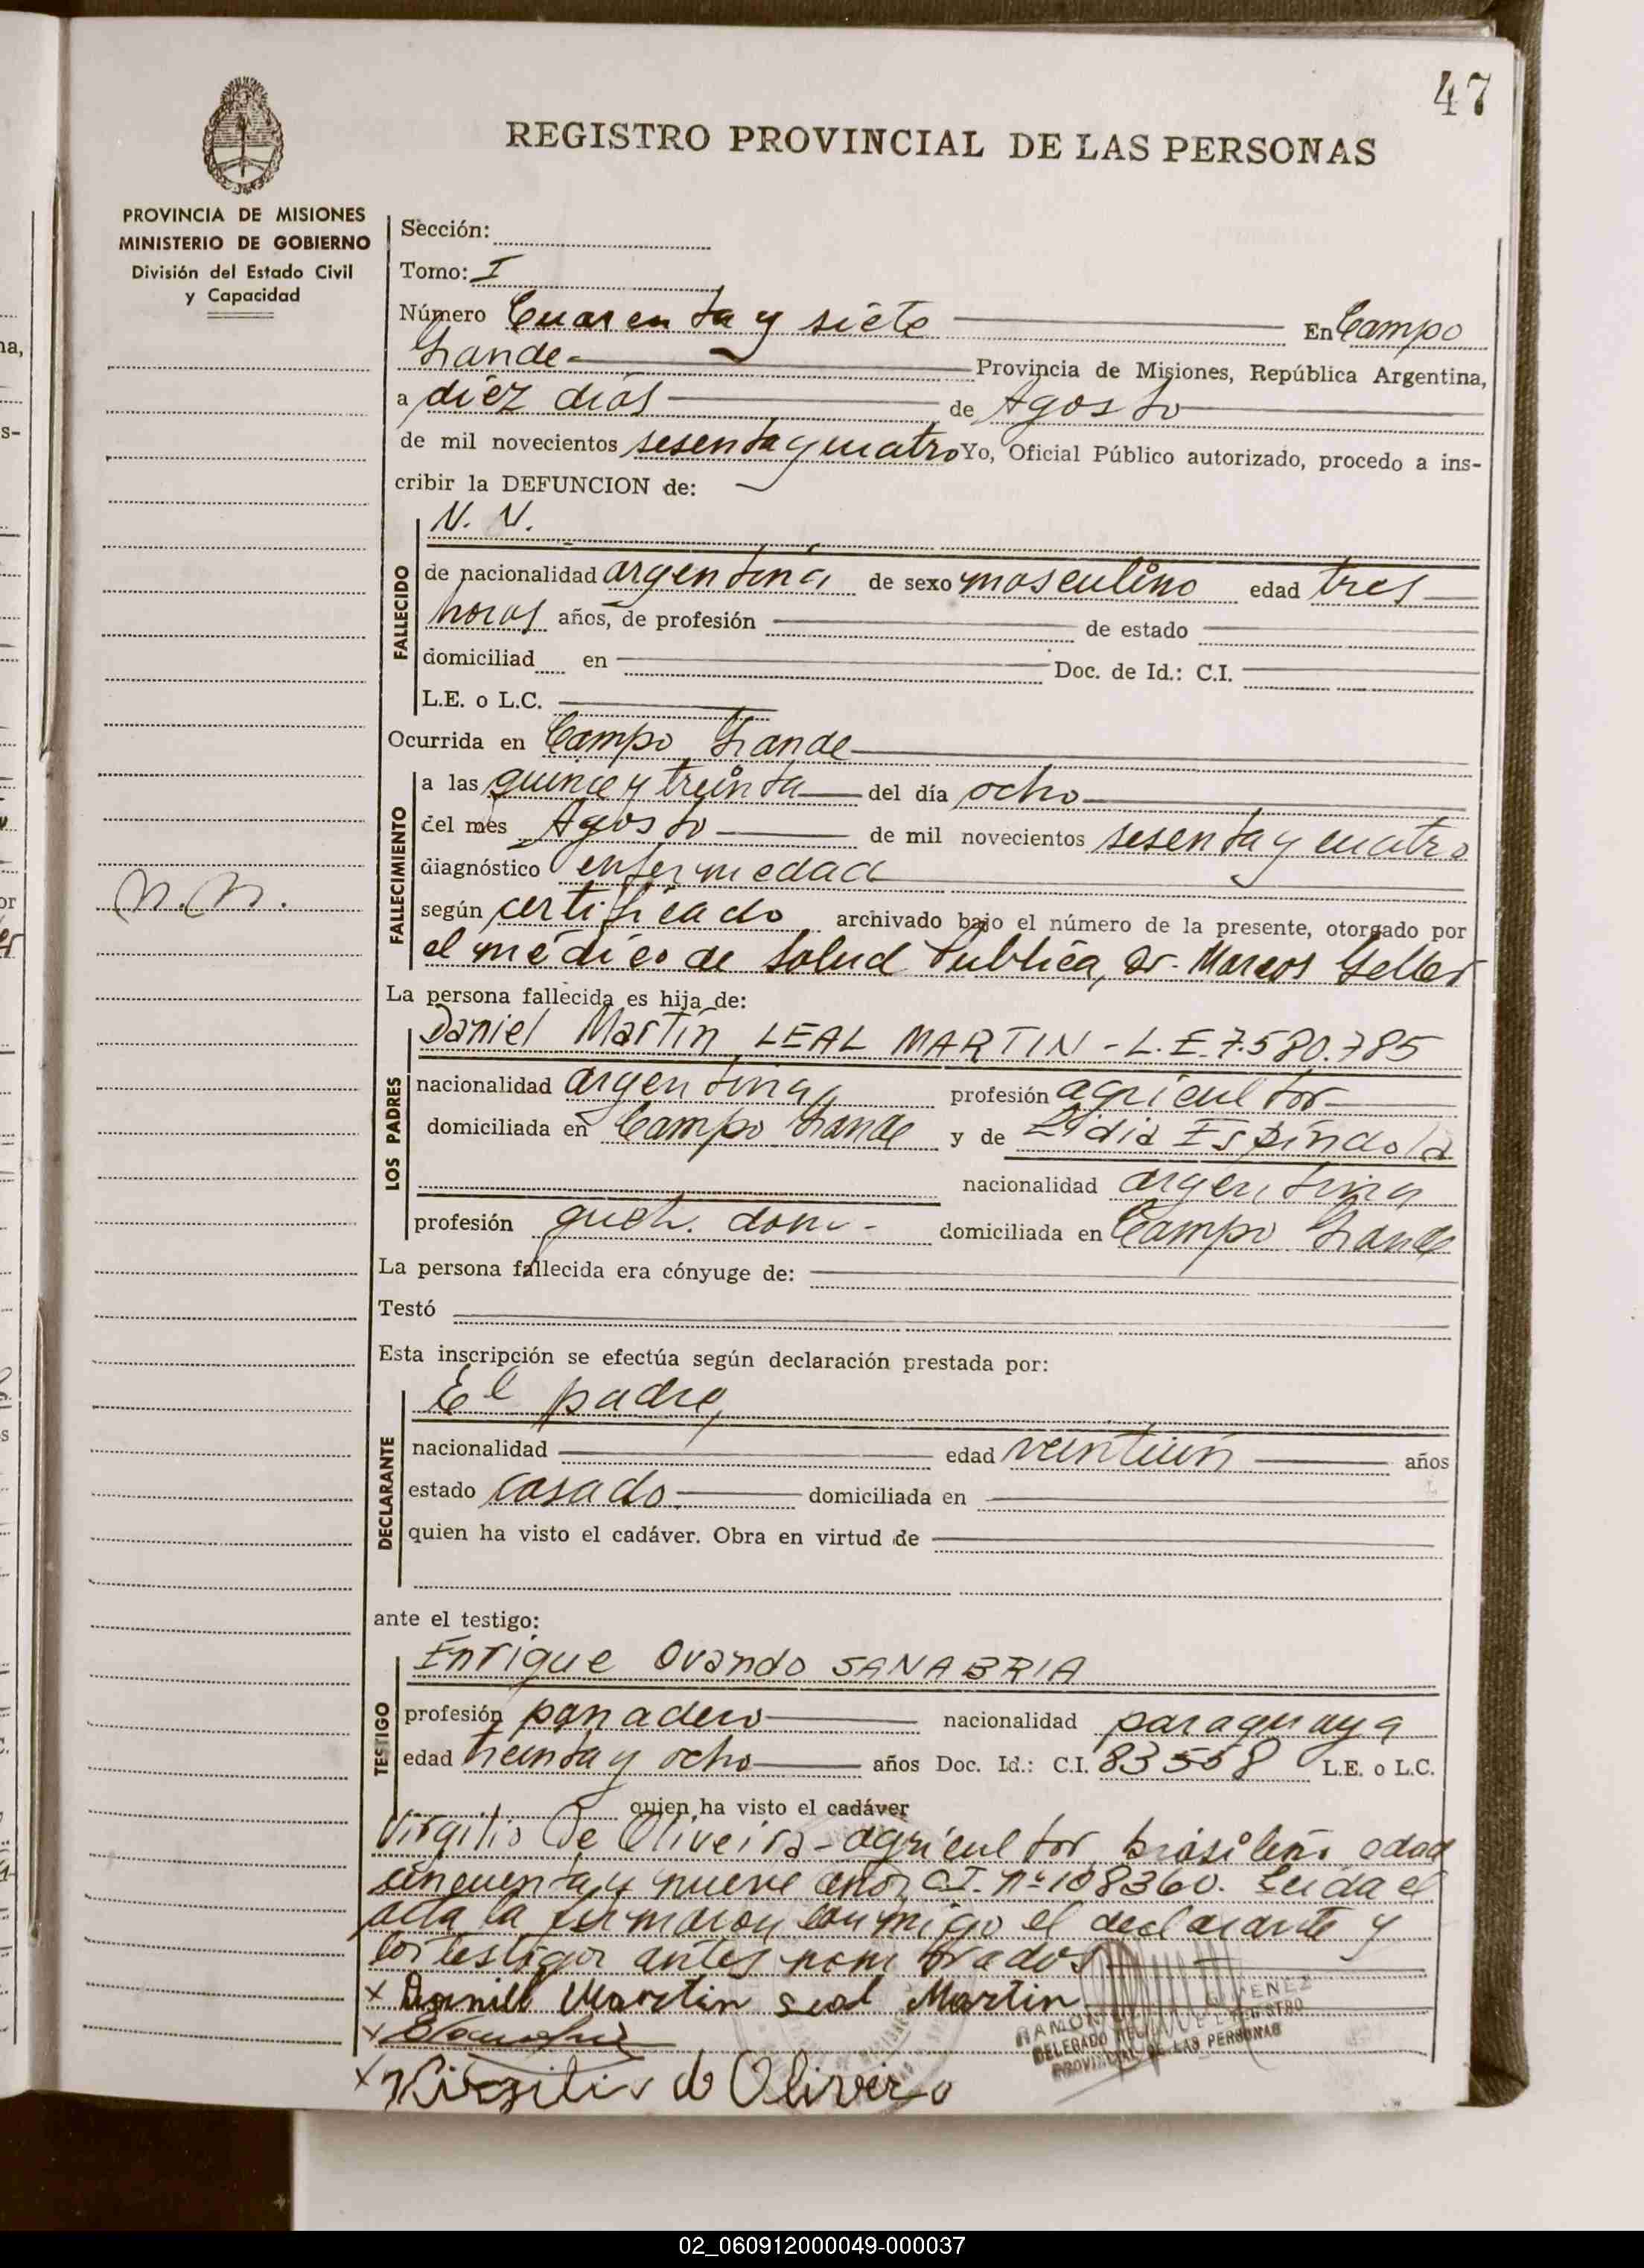 47
REGISTRO PROVINCIAL DE LAS PERSONAS
PROVINCIA DE MISIONES
MINISTERIO DE GOBIERNO
División del Estado Civil
y Capacidad
Sección:
Tomo: I
Número Cuarenta y siete En Campo
Grande Provincia de Misiones, República Argentina,
a diez días de Agosto
de mil novecientos sesenta y cuatro Yo, Oficial Público autorizado, procedo a ins-
cribir la DEFUNCION de:
N. N.
FALLECIDO
de nacionalidad argentina de sexo masculino edad tres
horas años, de profesión de estado
domiciliad en Doc. de Id.: C.I.
L.E. o L.C.
Ocurrida en Campo Grande
FALLECIMIENTO
a las quince y treinta del día ocho
del mes Agosto de mil novecientos sesenta y cuatro
diagnóstico enfermedad
n.n.
según certificado archivado bajo el número de la presente, otorgado por
el médico de Salud Publica, Dr. Marcos Geller
La persona fallecida es hija de:
LOS PADRES
Daniel Martín LEAL MARTIN - L.E. 7.580.785
nacionalidad argentina, profesión agricultor
domiciliada en Campo Grande y de Lidia Espíndola
nacionalidad argentina
profesión queh. dom. domiciliada en Campo Grande
La persona fallecida era cónyuge de:
Testó
Esta inscripción se efectúa según declaración prestada por:
DECLARANTE
El padre,
nacionalidad edad veintiún años
estado casado domiciliada en
quien ha visto el cadáver. Obra en virtud de
ante el testigo:
TESTIGO
Enrique Ovando SANABRIA
profesión panadero nacionalidad paraguaya
edad treinta y ocho años Doc. Id.: C.I. 83558 L.E. o L.C.
quien ha visto el cadáver
Virgilio De Oliveira - agricultor, brasileño edad
cincuenta y nueve años, C.I. nº 108360. Leida el
acta la firmaron conmigo el declarante y
los testigos antes nombrados
x Daniel Martin Leal Martin
RAMON JIMENEZ
DELEGADO REGISTRO
PROVINCIAL DE LAS PERSONAS
x
x Virgilio de Oliveira
02_060912000049-000037